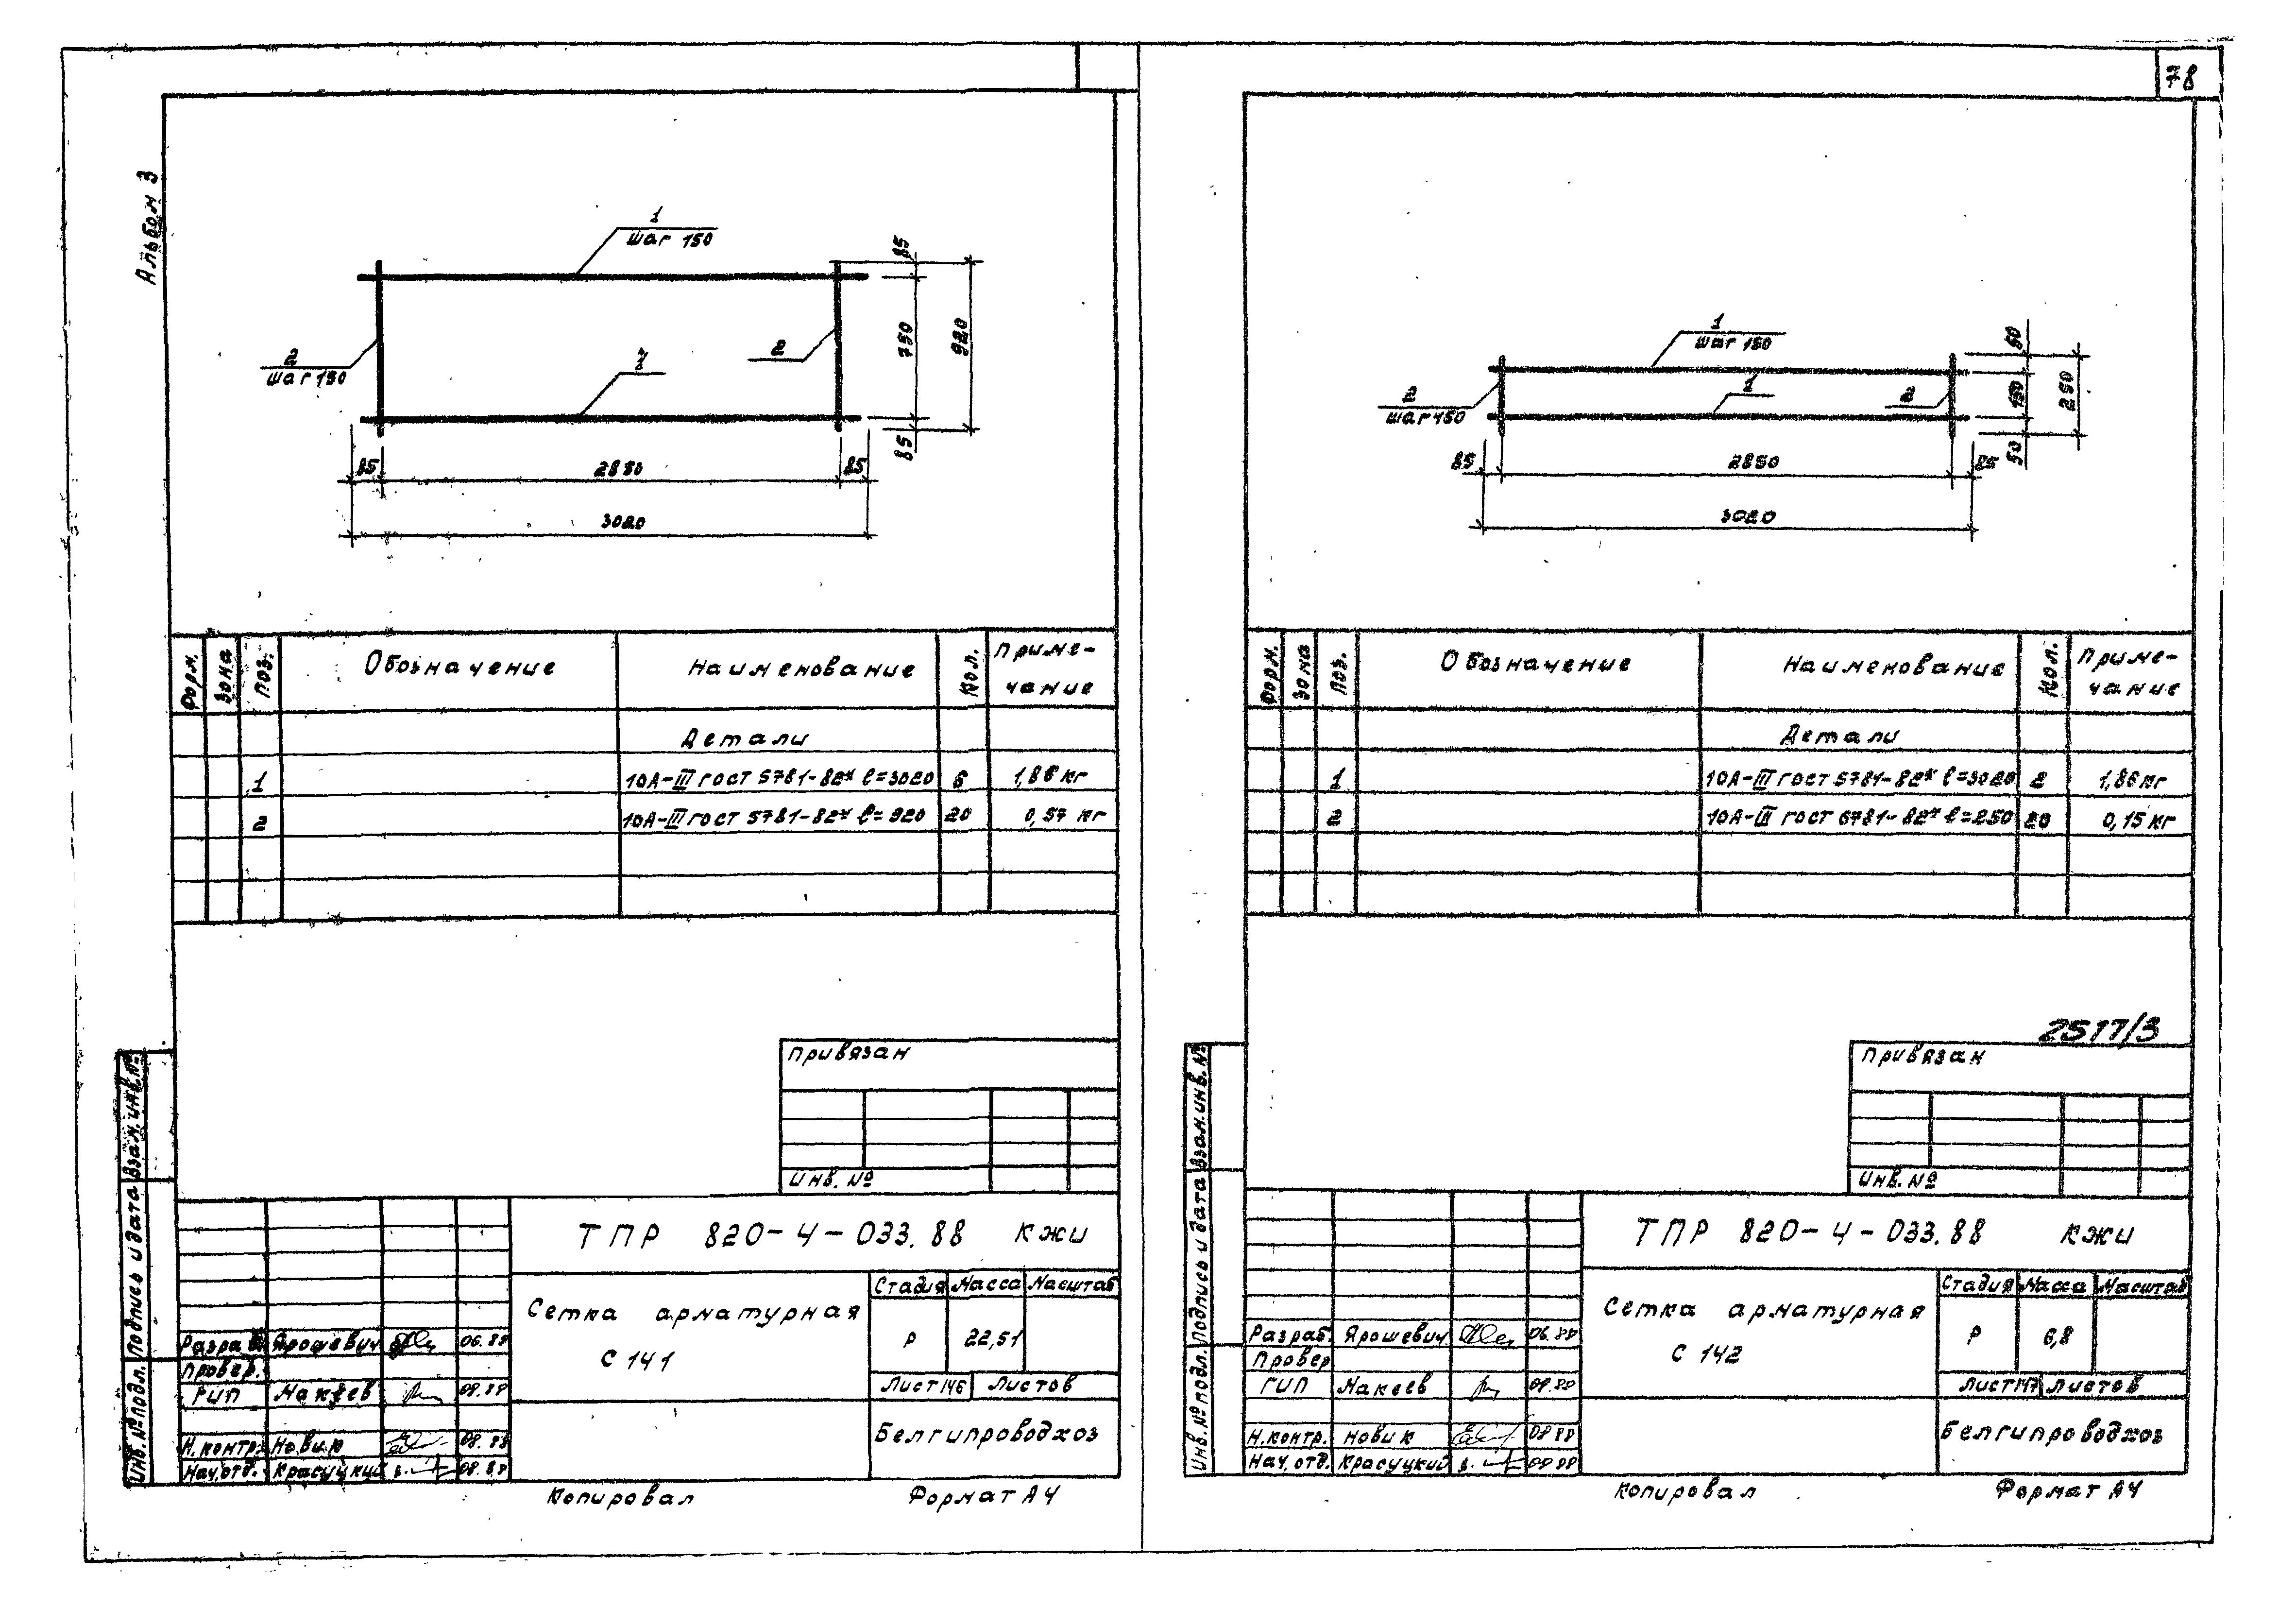 78
Альбом 3
1
шаг 150
2
шаг 150
1
2
85
750
85
920
85
2850
85
3020
Форм.
Зона
Поз.
Обозначение
Наименование
Кол.
Приме-
чание
Детали
1
10А-III ГОСТ 5781-82* ℓ=3020
6
1,86 кг
2
10А-III ГОСТ 5781-82* ℓ=920
20
0,57 кг
Привязан
Инв. №
ТПР 820-4-033.88 КЖИ
Сетка арматурная
С 141
Стадия
Масса
Масштаб
Р
22,51
Лист 146
Листов
Белгипроводхоз
Разраб.
Ярошевич
06.88
Провер.
ГИП
Макеев
08.88
Н.контр.
Новик
08.88
Нач.отд.
Красуцкий
08.88
Взам.инв.№
Подпись и дата
Инв.№ подл.
Копировал
Формат А4
1
шаг 150
2
шаг 150
1
2
50
150
50
250
85
2850
85
3020
Форм.
Зона
Поз.
Обозначение
Наименование
Кол.
Приме-
чание
Детали
1
10А-III ГОСТ 5781-82* ℓ=3020
2
1,86 кг
2
10А-III ГОСТ 5781-82* ℓ=250
20
0,15 кг
2517/3
Привязан
Инв. №
ТПР 820-4-033.88 КЖИ
Сетка арматурная
С 142
Стадия
Масса
Масштаб
Р
6,8
Лист 147
Листов
Белгипроводхоз
Разраб.
Ярошевич
06.88
Провер
ГИП
Макеев
08.88
Н.контр.
Новик
08 88
Нач.отд.
Красуцкий
08 88
Взам.инв.№
Подпись и дата
Инв.№ подл.
Копировал
Формат А4